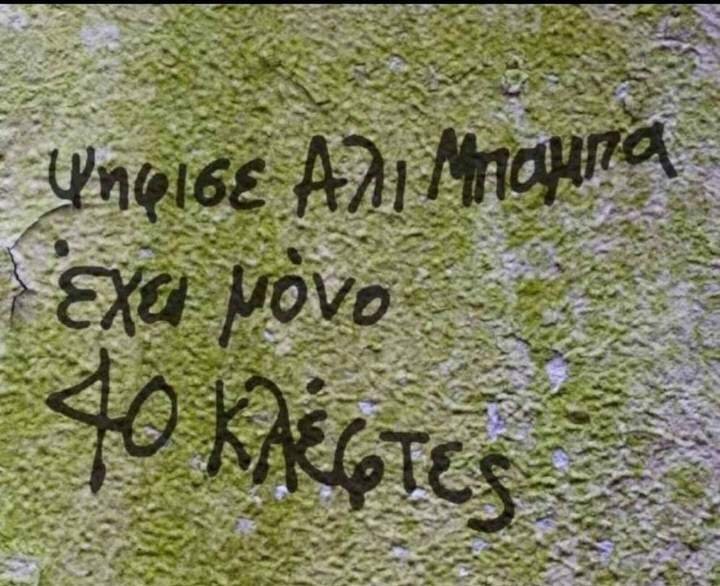 Ψηφισε Αλι Μπαμπα
έχει μόνο
40 κλέφτες